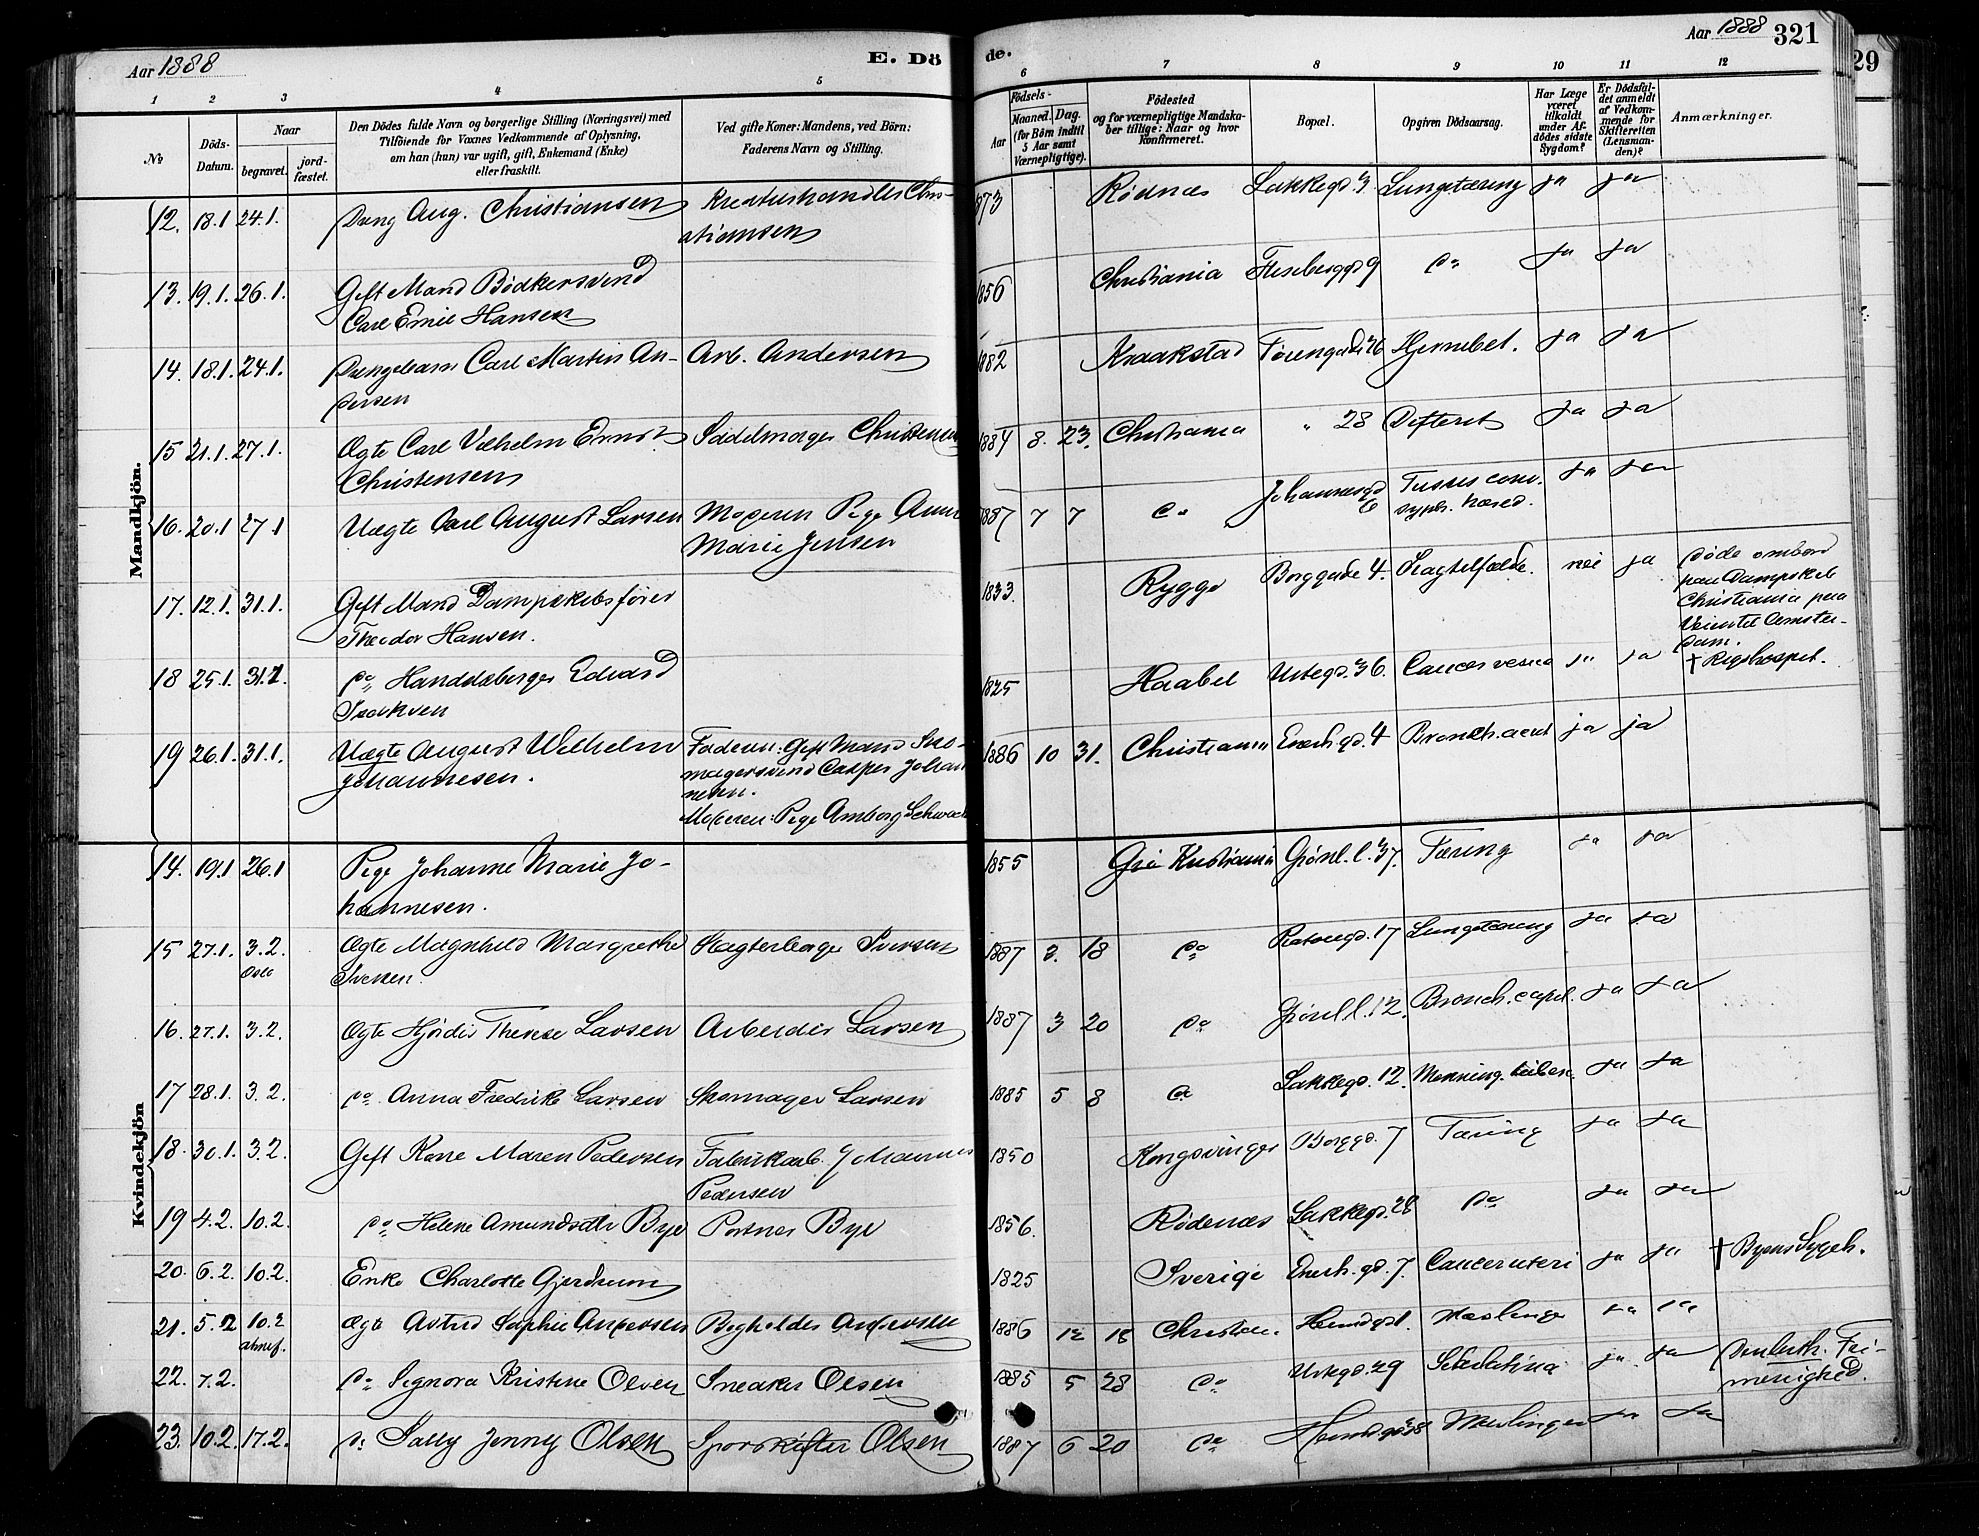 Aar 1888
E. Dö
de.
Aar 1888 321
29
1 2 3 4 5 6 7 8 9 10 11 12
No
Döds-
Datum.
Naar
begravet.
jord-
fæstet.
Den Dödes fulde Navn og borgerlige Stilling (Næringsvei) med
Tilföiende for Voxnes Vedkommende af Oplysning,
om han (hun) var ugift, gift, Enkemand (Enke)
eller fraskilt.
Ved gifte Koner: Mandens, ved Börn:
Faderens Navn og Stilling.
Födsels-
Aar
Maaned. Dag.
(for Börn indtil
5 Aar samt
Værnepligtige).
Födested
og for værnepligtige Mandska-
ber tillige: Naar og hvor
Konfirmeret.
Bopæl.
Opgiven Dödsaarsag.
Har Læge
været
tilkaldt
under Af-
dödes sidste
Sygdom?
Er Dödsfal-
det anmeldt
af Vedkom-
mende for
Skifteretten
(Lensman-
den)?
Anmærkninger.
Mandkjön.
12. 18.1 24.1. Dreng Aug. Christiansen Kreaturhandler Chri-
stiansen 1873 Rödnæs Lakkegd. 3 Lungetæring ja ja
13. 19.1. 26.1. Gift Mand Bödkersvend
Carl Emil Hansen 1856 Christiania 9 do ja ja
14. 18.1. 24.1. Pungebarn Carl Martin An-
dersen Arb. Andersen 1882 Kraakstad 26 Hjernebet. ja ja
15 21.1. 27.1. Ægte Carl Vilhelm Ernst
Christensen Sadelmager Christensen 1884 8. 23. Christiania " 28 Difterit ja ja
16. 20.1 27.1 Uægte Carl August Larsen Moderen Pige Anne
Marie Jensen 1887 7 7 do Johannesgd
6 Tussis conv.
syph. hered. ja ja
17. 12.1. 31.1. Gift Mand Dampskibsförer
Theodor Hansen. 1833. Rygge Borggade 4. Slagtilfælde. nei ja Döde ombord
paa Dampskib
Christiania paa
Veien til Amster-
dam.
18 25.1. 31.1. do Handelsborger Edvard
Isaksen 1825 Haabel Urtegd. 36. Cancer vesica ja ja † Rigshospit.
19 26.1. 31.1. Uægte August Wilhelm
Johannesen. Faderen: Gift Mand Sko-
magersvend Casper Johan-
nesen.
Moderen: Pige Amborg 1886 10 31. Christiania Enerh.gd. 4 Bronch. acut ja ja
Kvindekjön
14. 19.1 26.1 Pige Johanne Marie Jo-
hannesen. 1855 Kristiania Grönl. l. 37. Tæring ja ja
15 27.1. 3.2.
Oslo Ægte Magnhild Margrethe
Iversen. Slagterborger Iversen 1887 2. 18 do Platougd. 17 Lungetæring ja ja
16. 27.1. 3.2. Ægte Hjördis Therese Larsen Arbeider Larsen 1887 3 20 do Grönl. l. 12. Bronch. capil. ja ja
17 28.1. 3.2. do Anna Fredrikke Larsen Skomager Larsen 1885 5 8 do Lakkegd. 12. Menning. tuberc. ja ja
18. 30.1. 3.2. Gift Kone Maren Pedersen Fabrikarb. Johannes
Pedersen 1850 Kongsvinger Borggd. 7 Tæring ja ja
19 4.2. 10.2. do Helene Amundsdtr Bye Portner Bye 1856. Rödenæs Lakkegd. 28 do ja ja
20. 6.2. 10.2. Enke Charlotte Gjerdrum 1825 Sverige Enerh. gd. 7. Cancer uteri ja ja † Byens Sygeh.
21. 5.2 10.2 Ægte Astrid Sophie Andersen Andersen 1886 12 18 Christian. Mæslinger ja ja
22. 7.2. do Signora Kristine Olsen Snedker Olsen 1885 5 28 do Urtegd. 29 Scharlatina ja ja Den luth. Fri-
menighed.
23. 10.2. 17.2. do Sally Jenny Olsen Sporskifter Olsen 1887 6 20 do Mæslinger ja ja